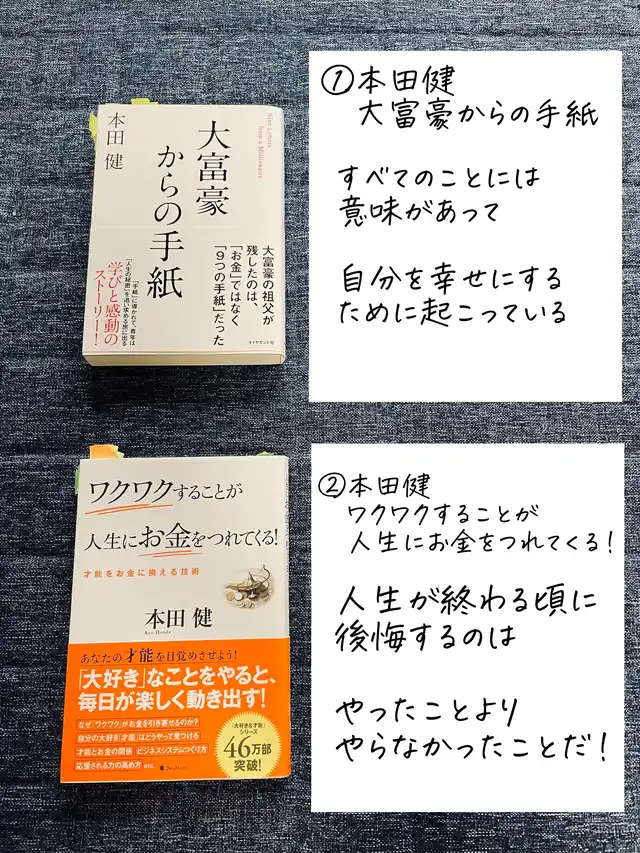 本田 健
大富豪
からの手紙
Nine Letters
from a Millionaire
大富豪の祖父が
残したのは、
「お金」ではなく
「9つの手紙」だった
「手紙」に導かれて、青年は
「人生の秘密」を追い求める旅に出る
学びと感動の
ストーリー！
ダイヤモンド社
①本田健
大富豪からの手紙
すべてのことには
意味があって
自分を幸せにする
ために起こっている
ワクワクすることが
人生にお金をつれてくる！
才能をお金に換える技術
本田 健
Ken Honda
あなたの才能を目覚めさせよう！
「大好き」なことをやると、
毎日が楽しく動き出す！
なぜ「ワクワク」がお金を引き寄せるのか？
自分の大好き「才能」はどうやって見つける
才能とお金の関係 ビジネスシステムつくり方
応援される力の高め方 etc.
「大好き&才能」
シリーズ
46万部
突破！
②本田健
ワクワクすることが
人生にお金をつれてくる！
人生が終わる頃に
後悔するのは
やったことより
やらなかったことだ！